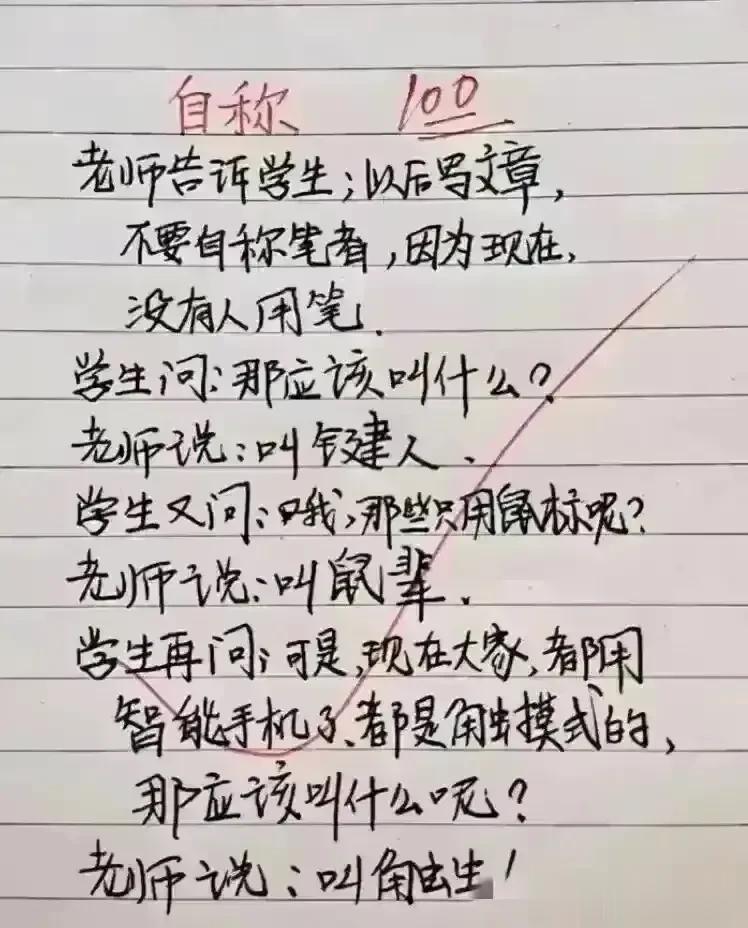 自称 100
老师告诉学生；以后写文章，
不要自称笔者，因为现在，
没有人用笔．
学生问：那应该叫什么？
老师说：叫键人．
学生又问：哦，那些只用鼠标呢？
老师说：叫鼠辈．
学生再问；可是，现在大家，都用
智能手机了、都是触摸式的，
那应该叫什么呢？
老师说：叫触生！